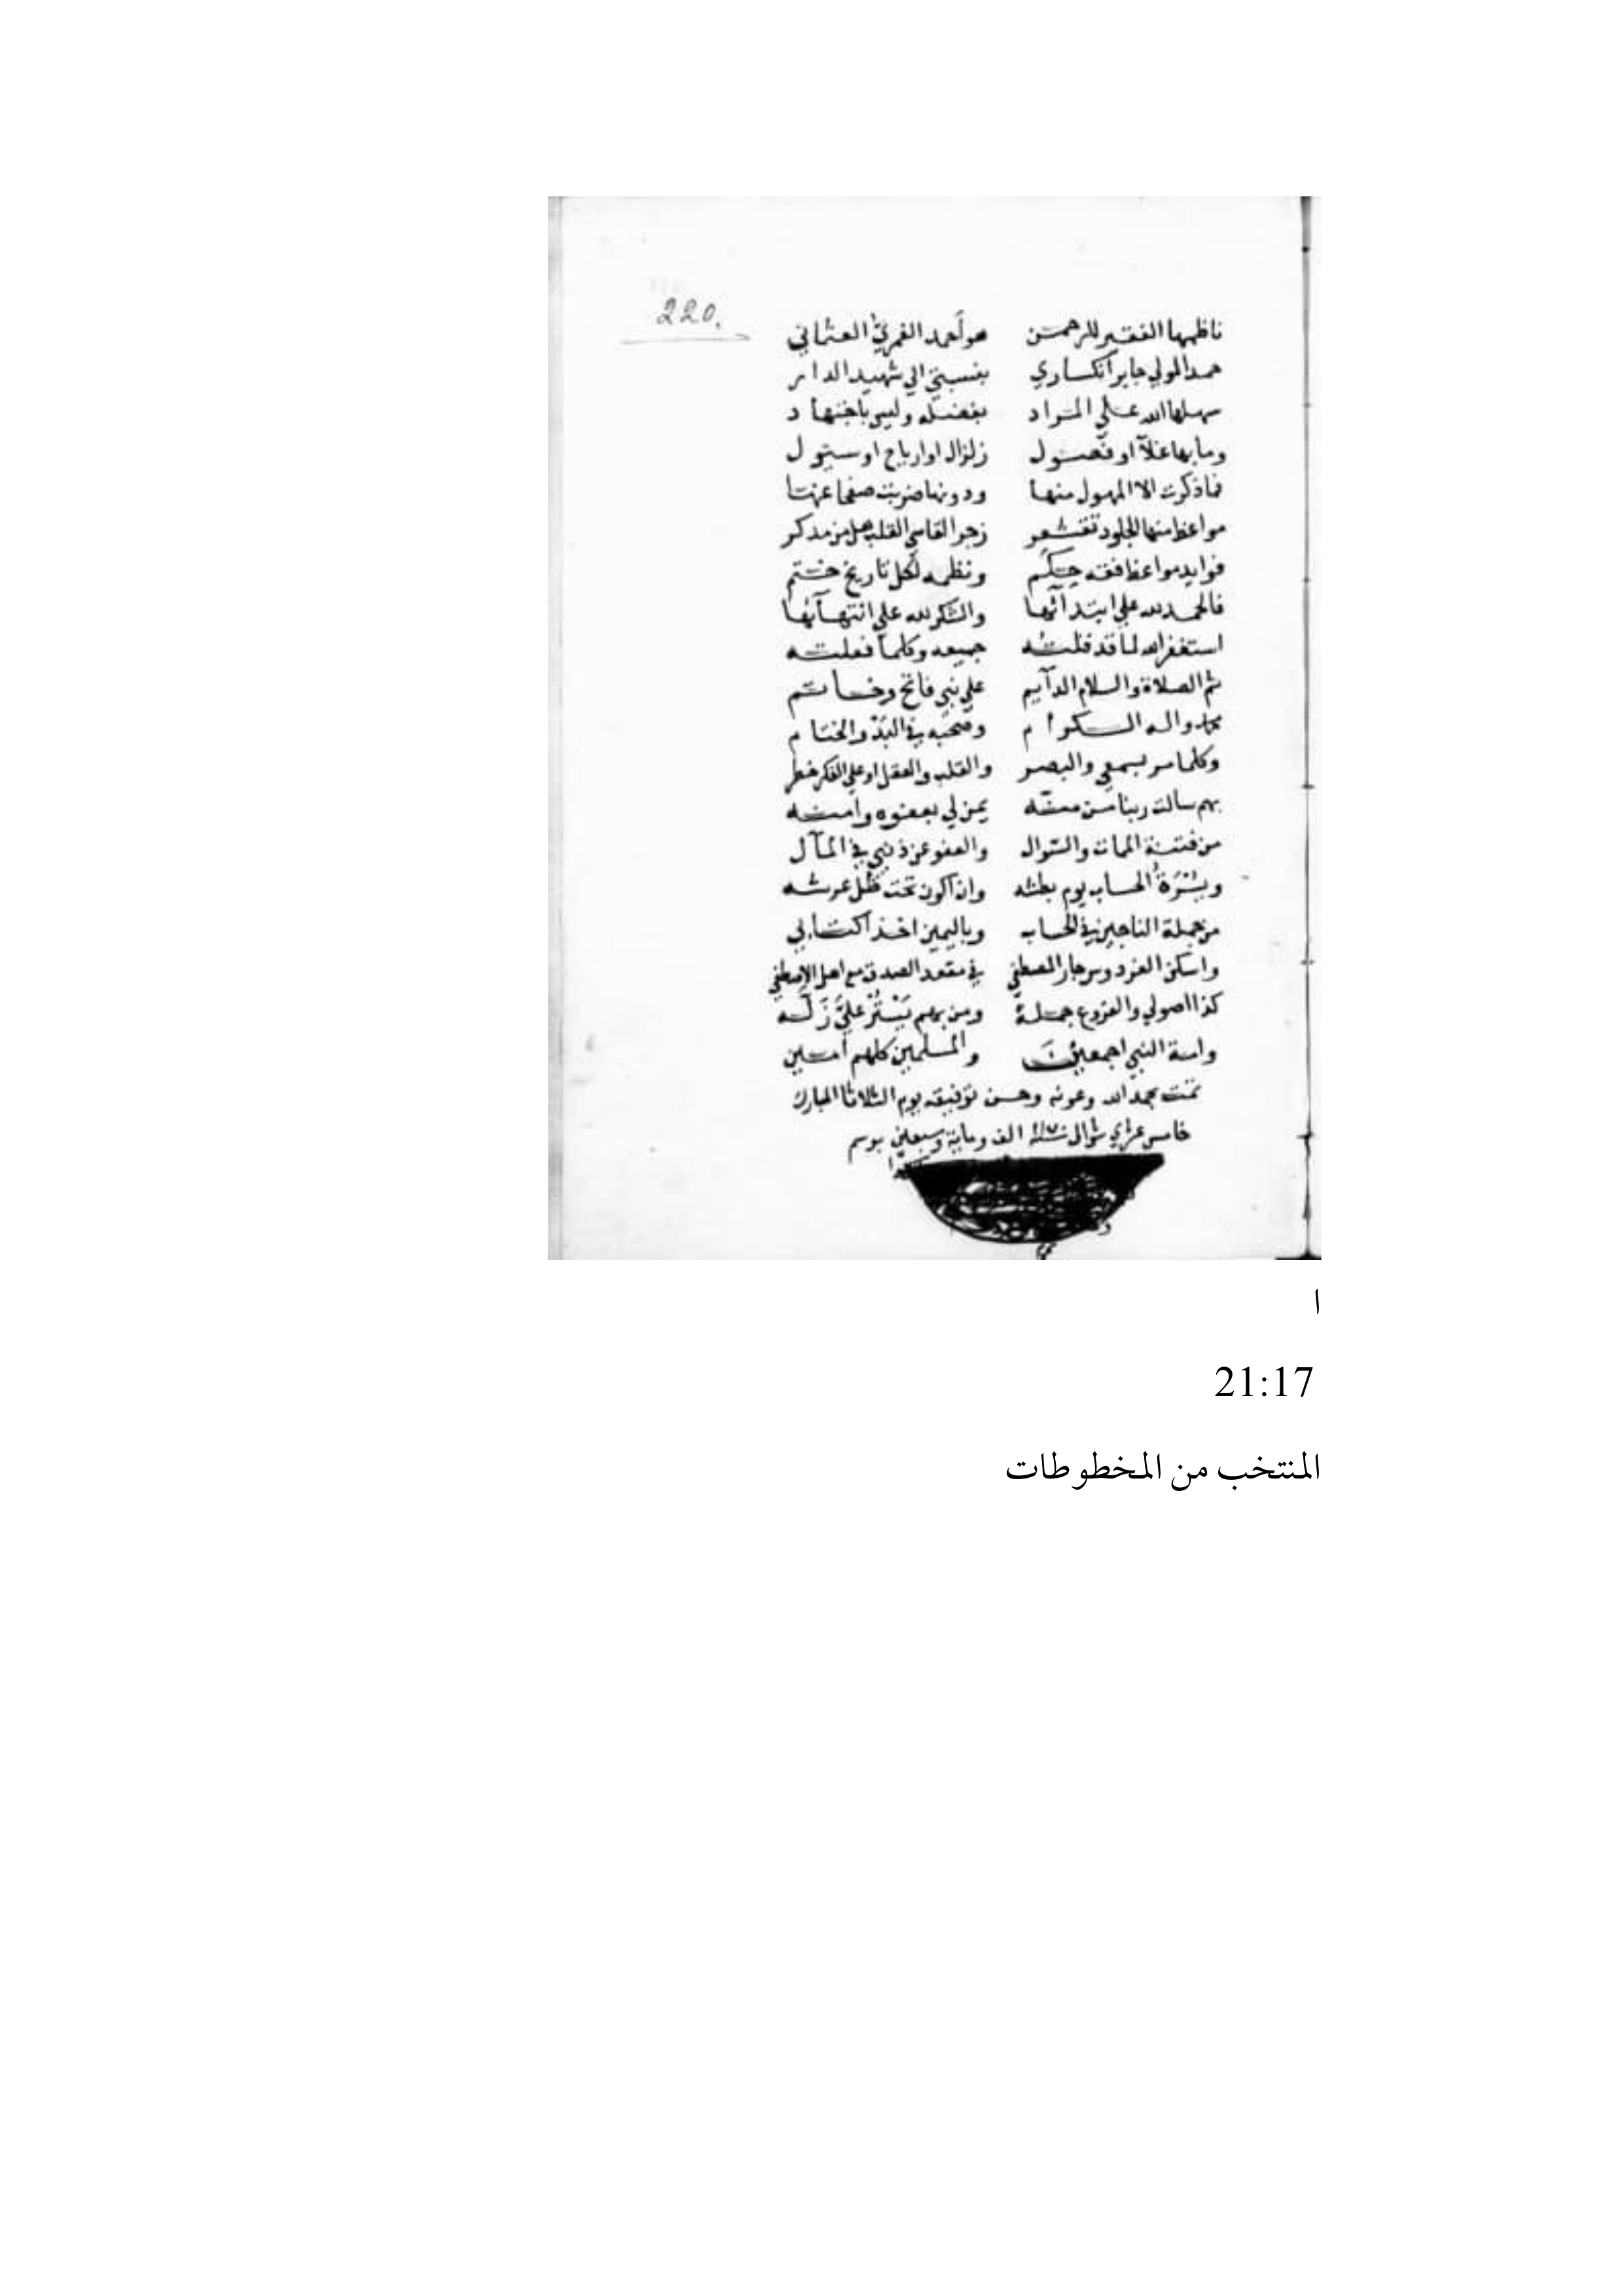 220.
ناظمها الفقير للرحمن هو أحمد الغمري العثماني
حمد المولي جابر انكساري بنسبتي الي شهيد الدار
سهلها الله علي المراد بفضله وليس باجتهاد
وما بها غلآ او فصول زلزال او ارياح او سيول
فما ذكرت الا المهول منها ودونها ضربت صفحا عنها
مواعظ منها الجلود تقشعر زجر القاسي القلب هل من مدكر
فوايد مواعظ فقه حكم ونظمه لكل تاريخ ختم
فالحمد لله علي ابتدآئها والشكر لله علي انتهآئها
استغفر الله لما قد قلته جميعه وكلما فعلته
ثم الصلاة والسلام الدآيم علي نبي فاتح وخاتم
محمد واله الكرام وصحبه في البدْ والختام
وكلما مر بسمعي والبصر والقلب والعقل او علي الفكر خطر
بهم سالت ربنا من منّه يمن لي بعفوه وامنه
من فتنة الممات والسّوال والعفو عن ذنبي في المآل
الحساب يوم بطشه وان اكون تحت ظل عرشه
من جملة الناجين في الحساب وباليمين اخذا كتابي
واسكن الفردوس جار المصطفي في مقعد الصدق مع اهل الاصطفي
كذا اصولي والفروع جملةً ومن بهم يَسْتُرْ عليَّ زَلّه
وامة النبي اجمعينَ والمسلمين كلهم امين
تمت بحمد الله وعونه وحسن توفيقه يوم الثلاثا المبارك
خامس شوال الف وماية وسبعين
ا
21:17
المنتخب من المخطوطات